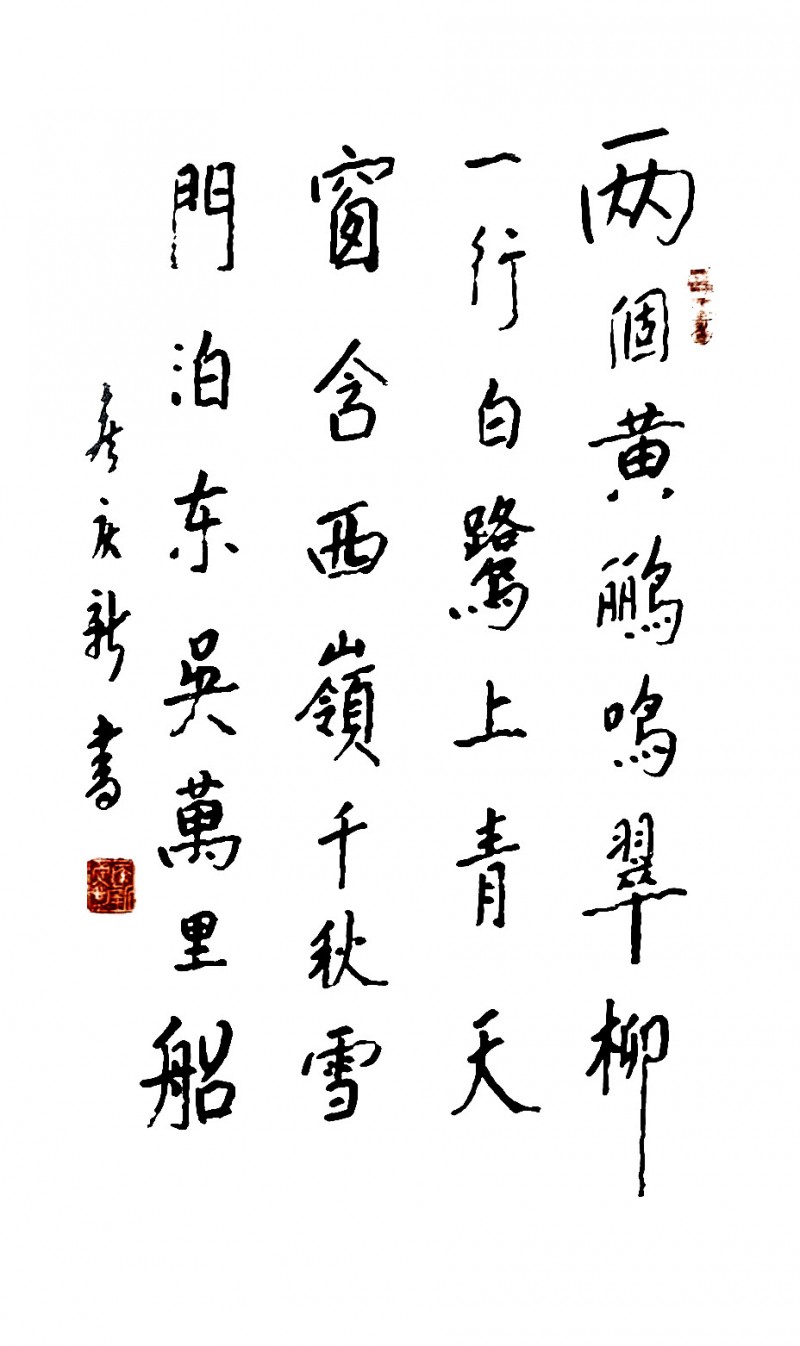 两個黄鹂鸣翠柳
一行白鷺上青天
窗含西嶺千秋雪
門泊东吳萬里船
庆新書